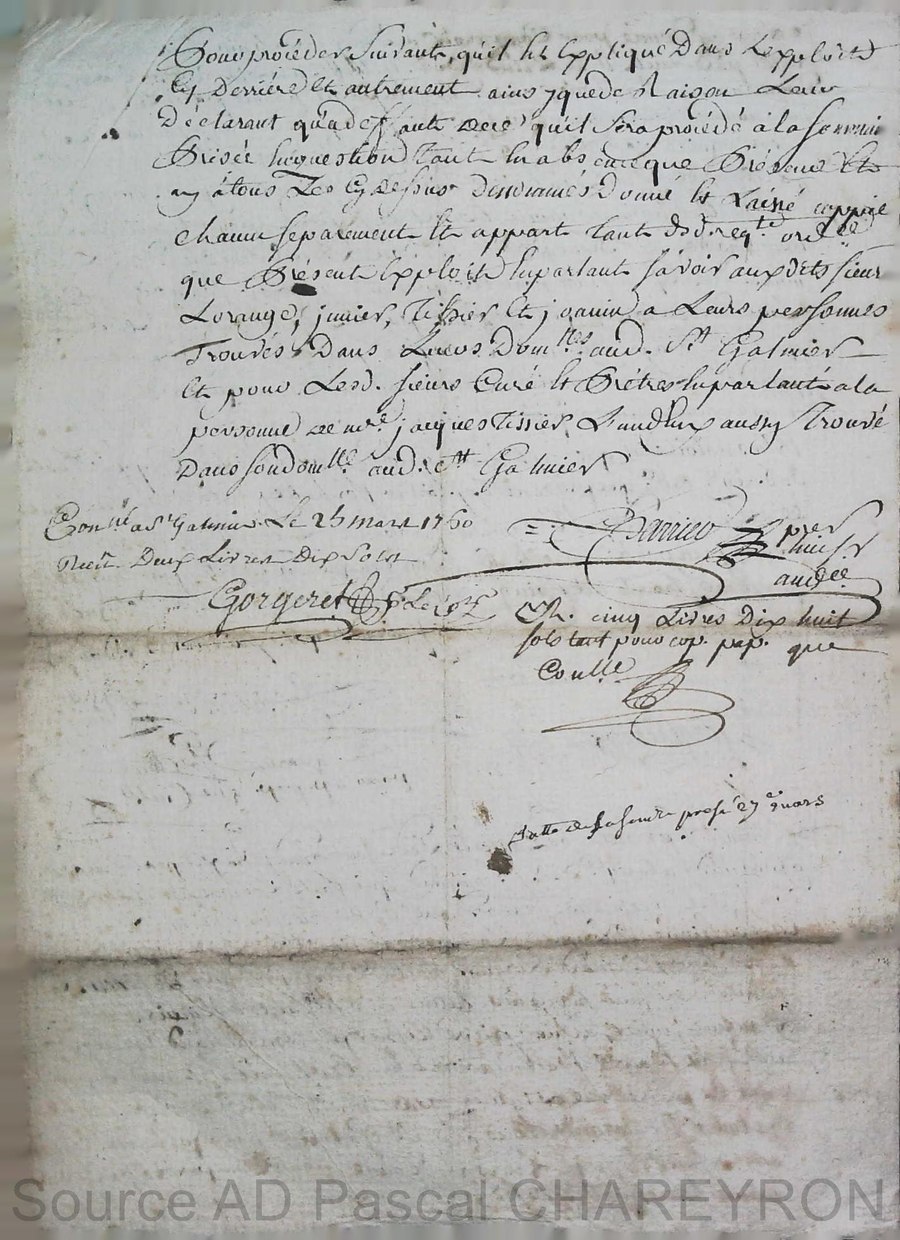 Pour procéder suivant, quil est Expliqué Dans Lexploit
Cy Derriere Et autrement ainsy que de Raison Leur
Déclarant qua deffaut de ce quil Sera procédé a la
Prisée En question Tant En absence que Présence Et
ay à tous Les Cy dessus dénommés Donné Et Laissé coppie
chacun separement Et appart tant desd. reqte ordce
que Présent Exploit En parlant savoir auxdits sieur
Lorange, junier, Tissier Et joanin a Leurs personnes
Trouvés Dans Leurs Domlles aud. St Galmier
Et pour Lesd. sieurs Curé Et Prêtres En parlant a la
personne de mre jacques Tissier L'un d'Eux aussy Trouvé
Dans son domlle aud. St Galmier
Conlé a St Galmier Le 25 mars 1760
Reçu Deux Livres Dix Sols
Gorgeret
per
huissr
audce
Et. cinq Livres Dix huit
sols tant pour cop. pap. que
Conlle
27e mars
Source AD Pascal CHAREYRON